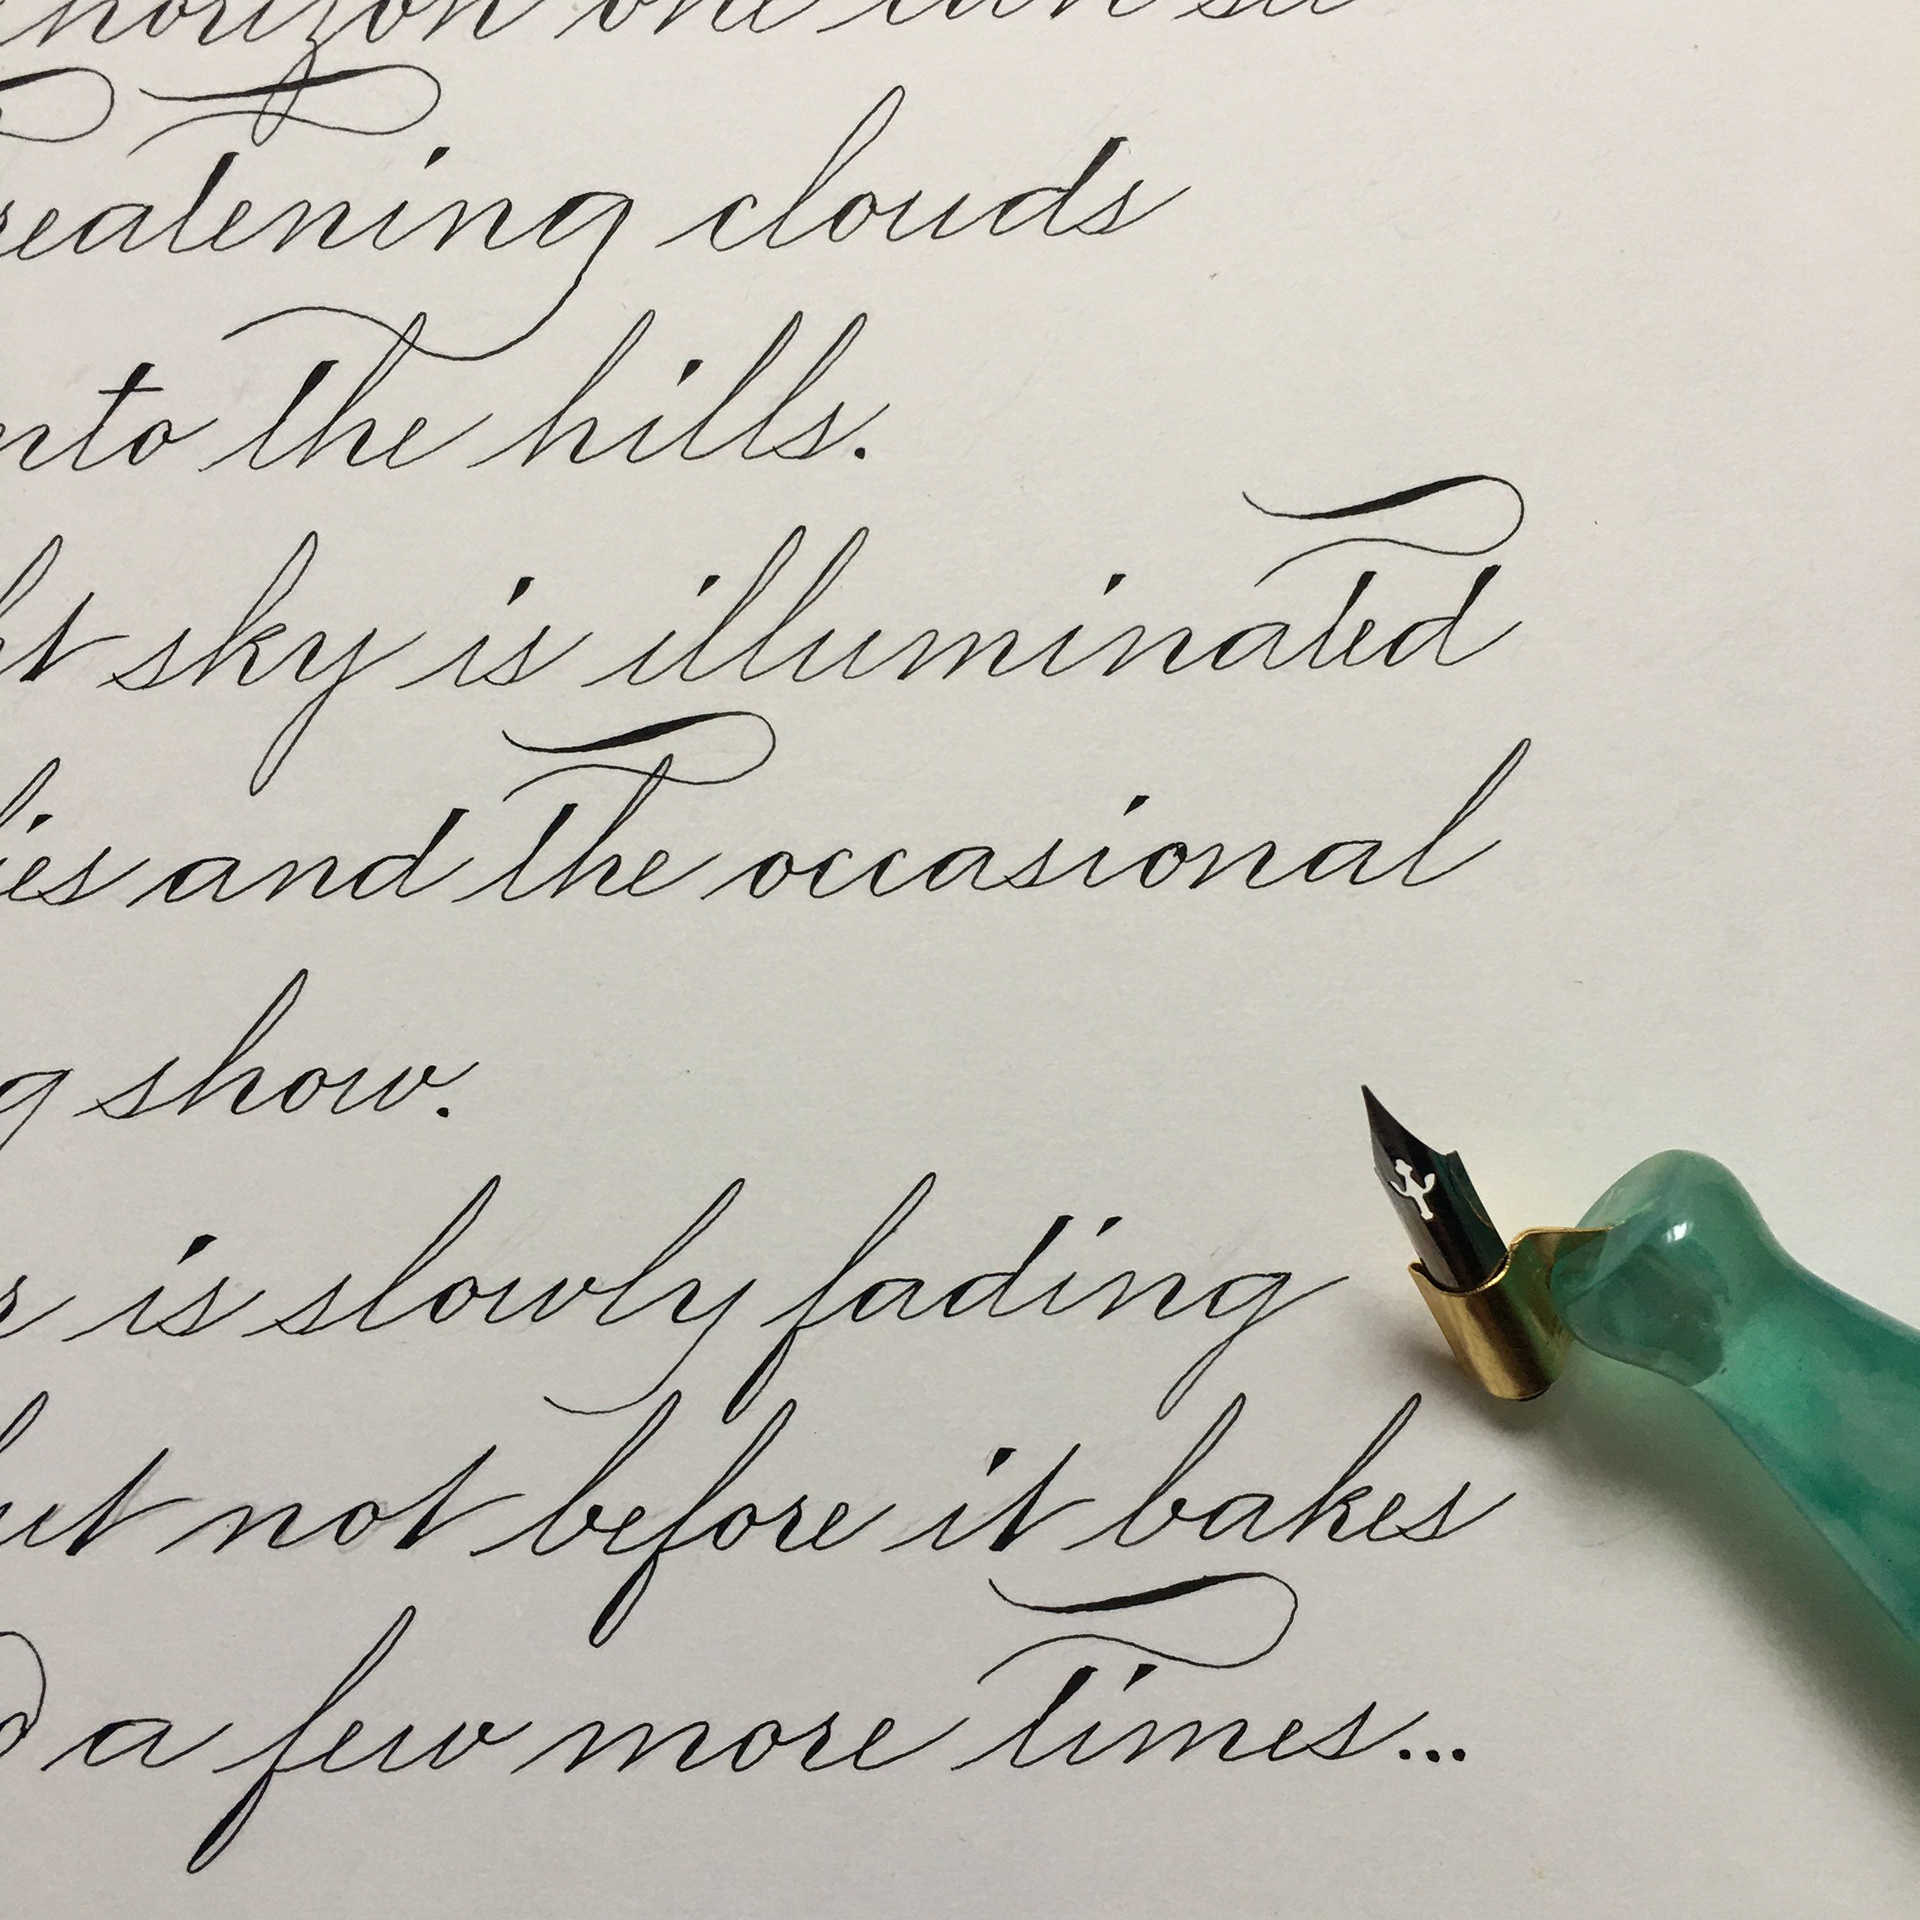 horizon one can se
reatening clouds
nto the hills.
ht sky is illuminated
lies and the occasional
g show.
r is slowly fading
but not before it bakes
d a few more times...